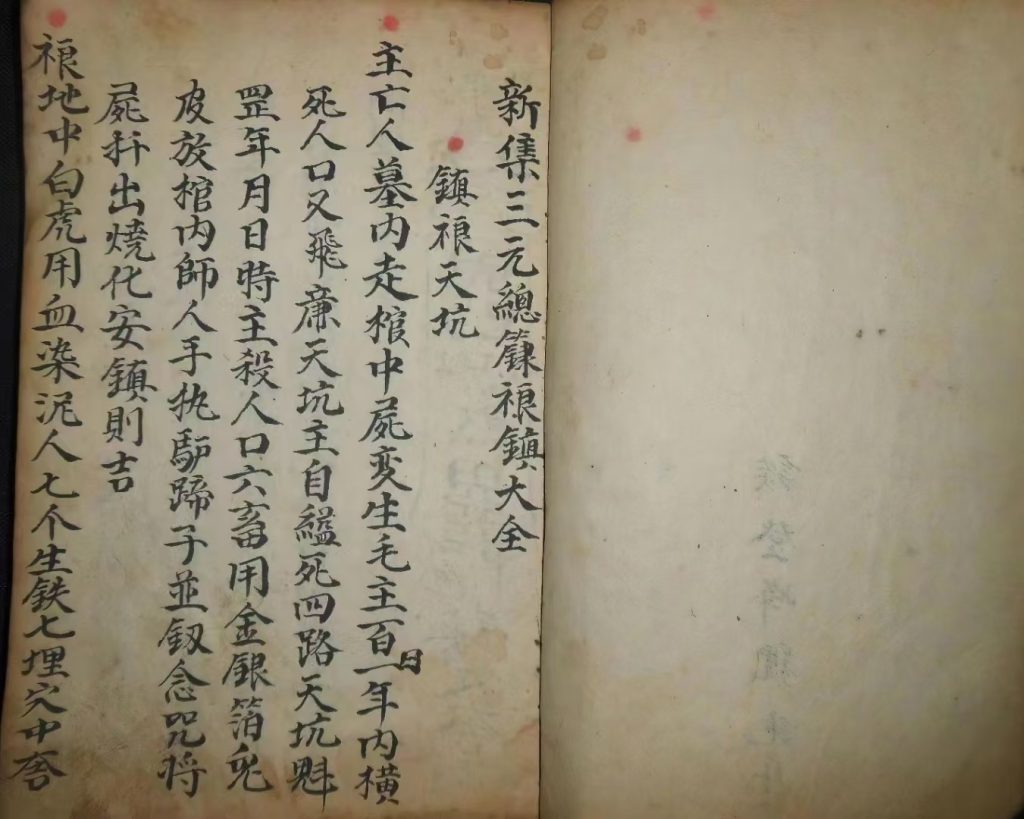 新集三元總籙裉鎮大全
鎮裉天坑
主亡人墓內走棺中屍変生毛主百日一年内横
死人口又飛廉天坑主自縊死四路天坑魁
罡年月日時主殺人口六畜用金銀箔兔
皮放棺内師人手执馿蹄子並釼念咒将
屍扦出燒化安鎮則吉
裉地中白虎用血染泥人七个生鉄七埋穴中